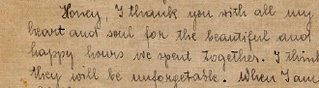 Honey! I thank you with all my
heart and soul for the beautiful and
happy hours we spent together. I think
they will be unforgetable! When I am